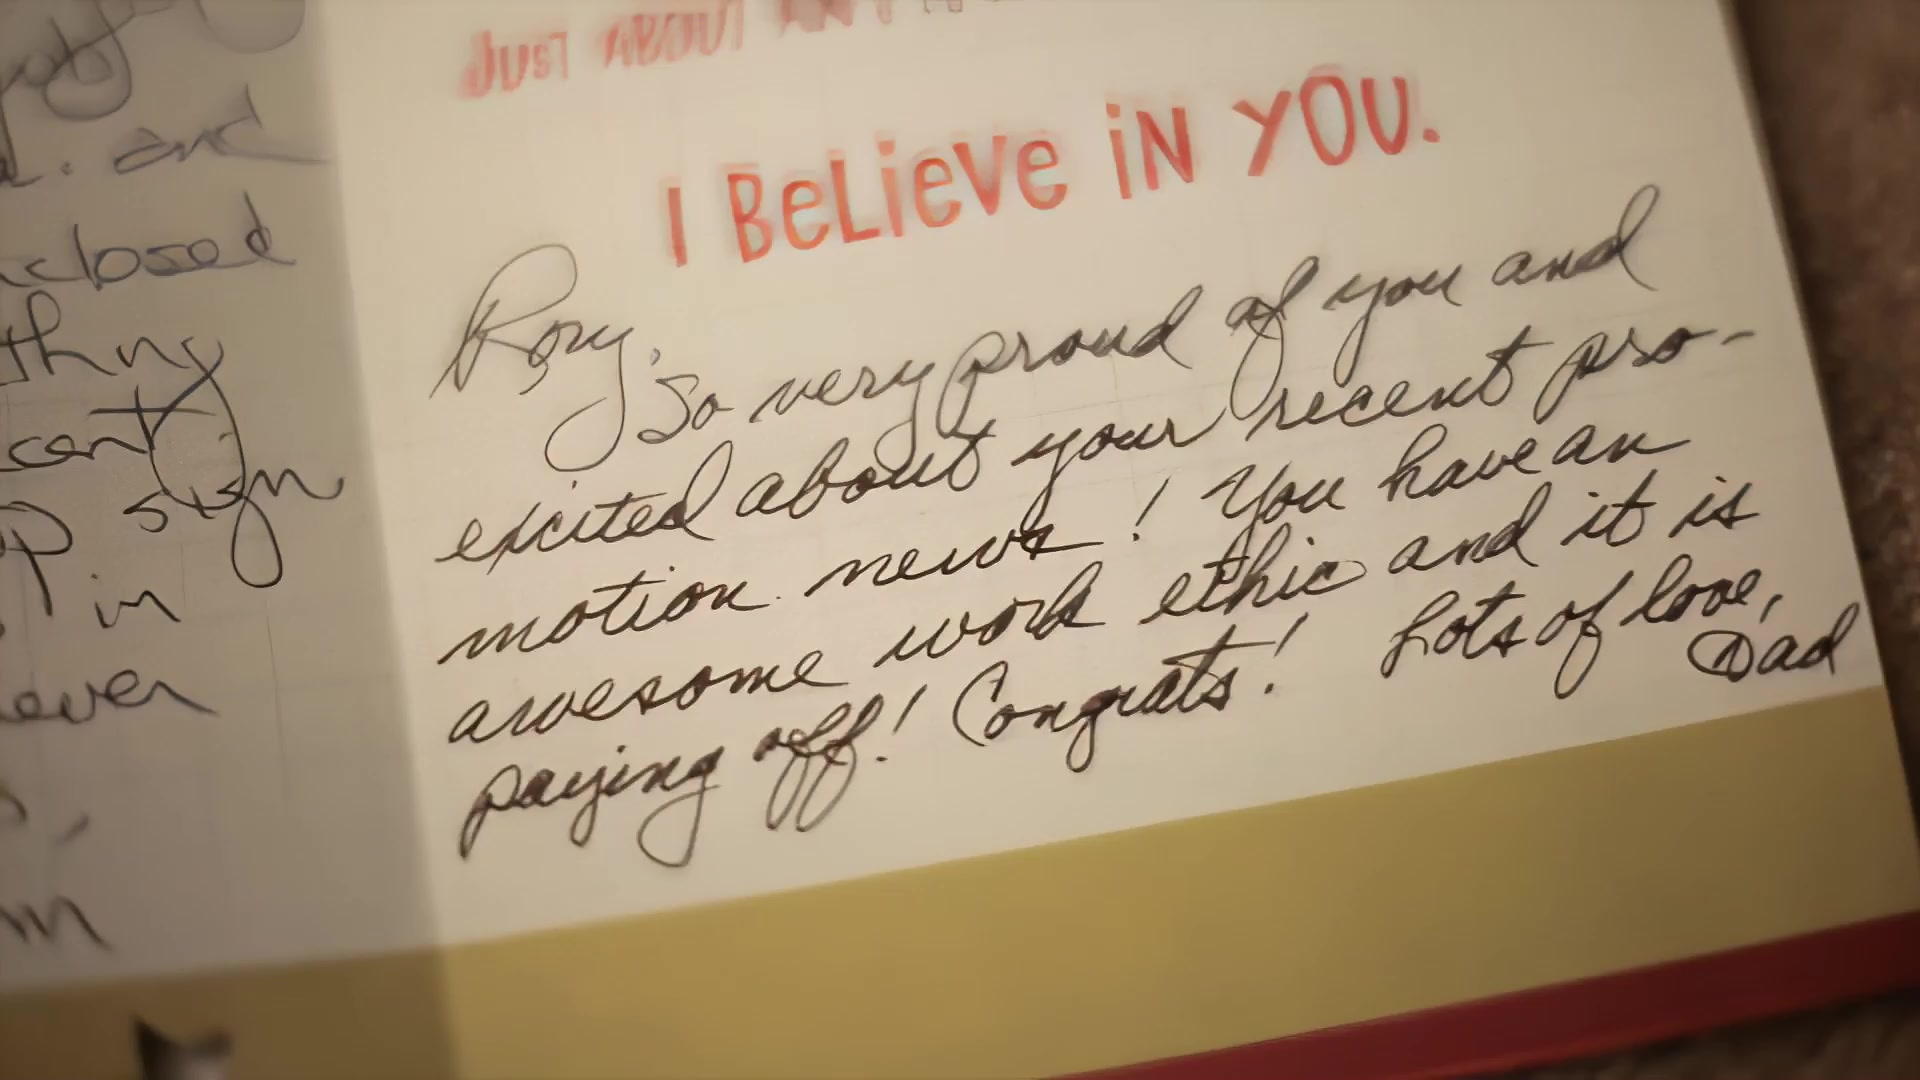 and
closed
sign
in
JUST ABOUT
I BELIEVE IN YOU.
Rory,
So very proud of you and
excited about your recent pro-
motion news! You have an
awesome work ethic and it is
paying off! Congrats! Lots of love,
Dad